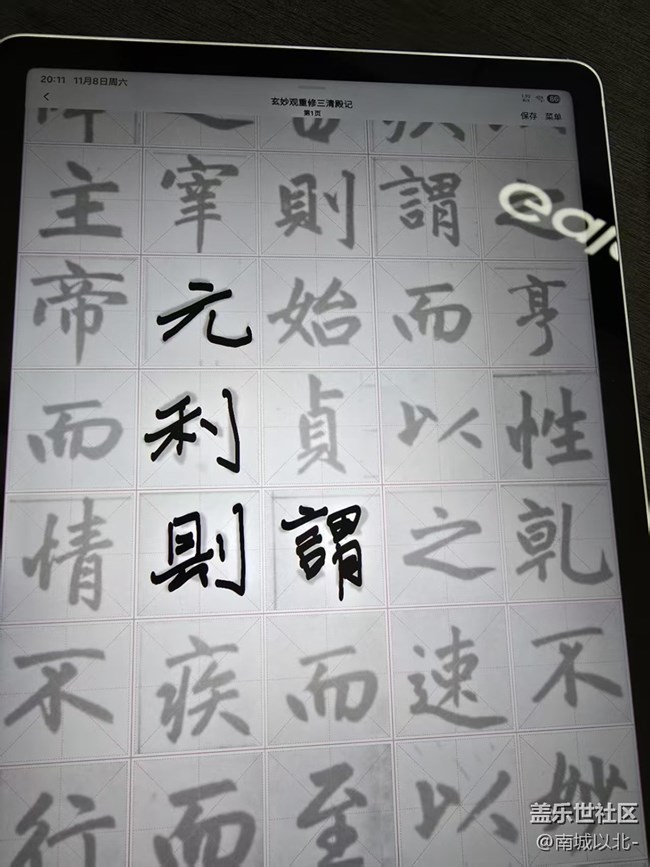 20:11 11月8日周六
玄妙观重修三清殿记
第1页
保存 菜单
主宰則謂之
帝元始而亨
而利貞以性
情則謂之乾
不疾而速不
行而至以妙
盖乐世社区
@南城以北-